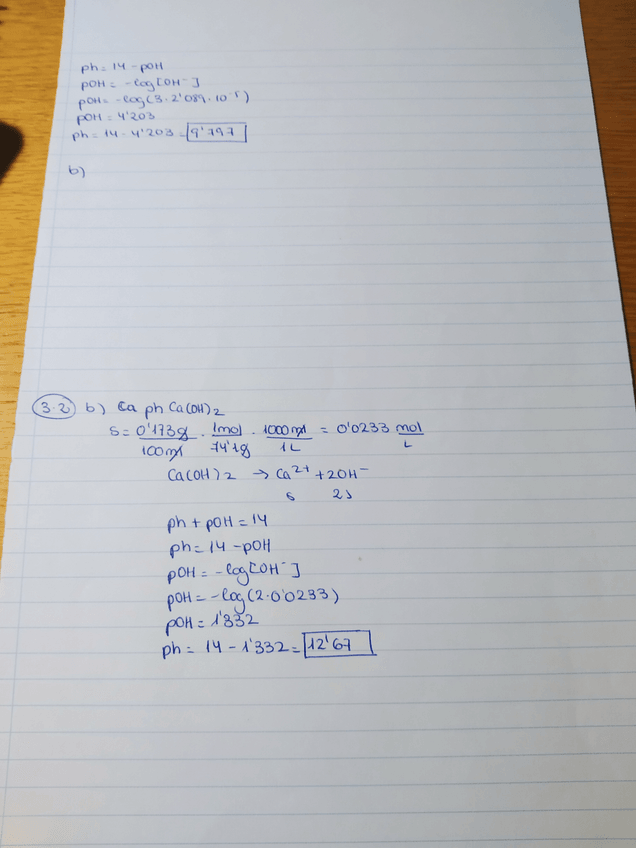 ph = 14 - pOH
pOH = -log[OH⁻]
pOH = -log(3·2'089·10⁻⁵)
pOH = 4'203
ph = 14 - 4'203 = 9'797
b)
3.2 b) Ca ph Ca(OH)2
S = 0'173g/100ml · 1mol/74'1g · 1000ml/1L = 0'0233 mol/L
Ca(OH)2 → Ca²⁺ + 2OH⁻
s 2s
ph + pOH = 14
ph = 14 - pOH
pOH = -log[OH⁻]
pOH = -log(2·0'0233)
pOH = 1'332
ph = 14 - 1'332 = 12'67